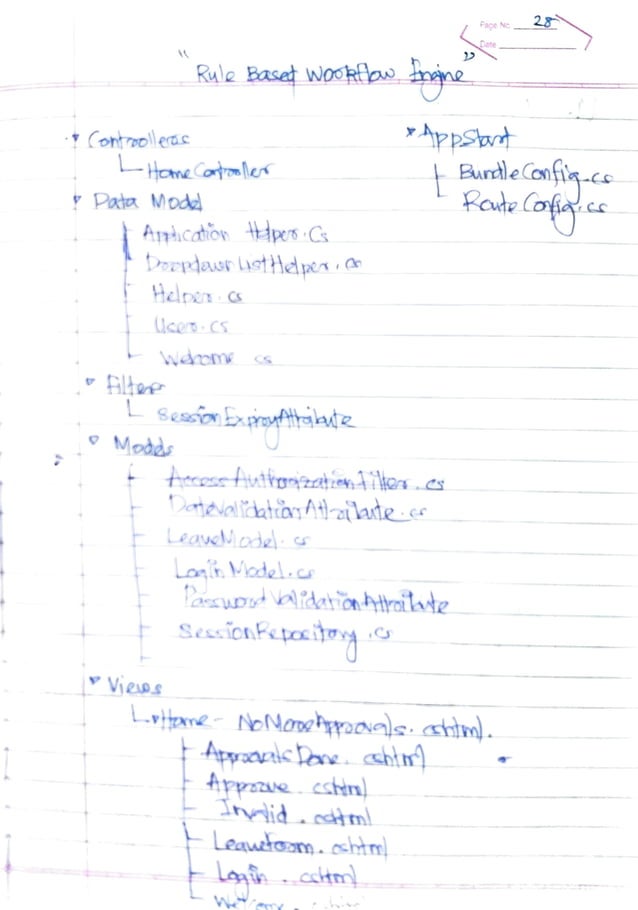 Page No. 28
Date
"Rule Based Workflow Engine"
Controllers
HomeController
Data Model
Application Helper.Cs
DropdownListHelper.cs
Helper.cs
User.cs
Welcome cs
Filters
SessionExpiryAttribute
Models
AccessAuthorizationFilter.cs
DateValidationAttribute.cs
LeaveModel.cs
LoginModel.cs
PasswordValidationAttribute
SessionRepository.cs
Views
Home - NoMoreApprovals.cshtml.
ApprovalsDone.cshtml
Approve.cshtml
Invalid.cshtml
Leaveform.cshtml
Login.cshtml
Welcome.cshtml
AppStart
BundleConfig.cs
RouteConfig.cs